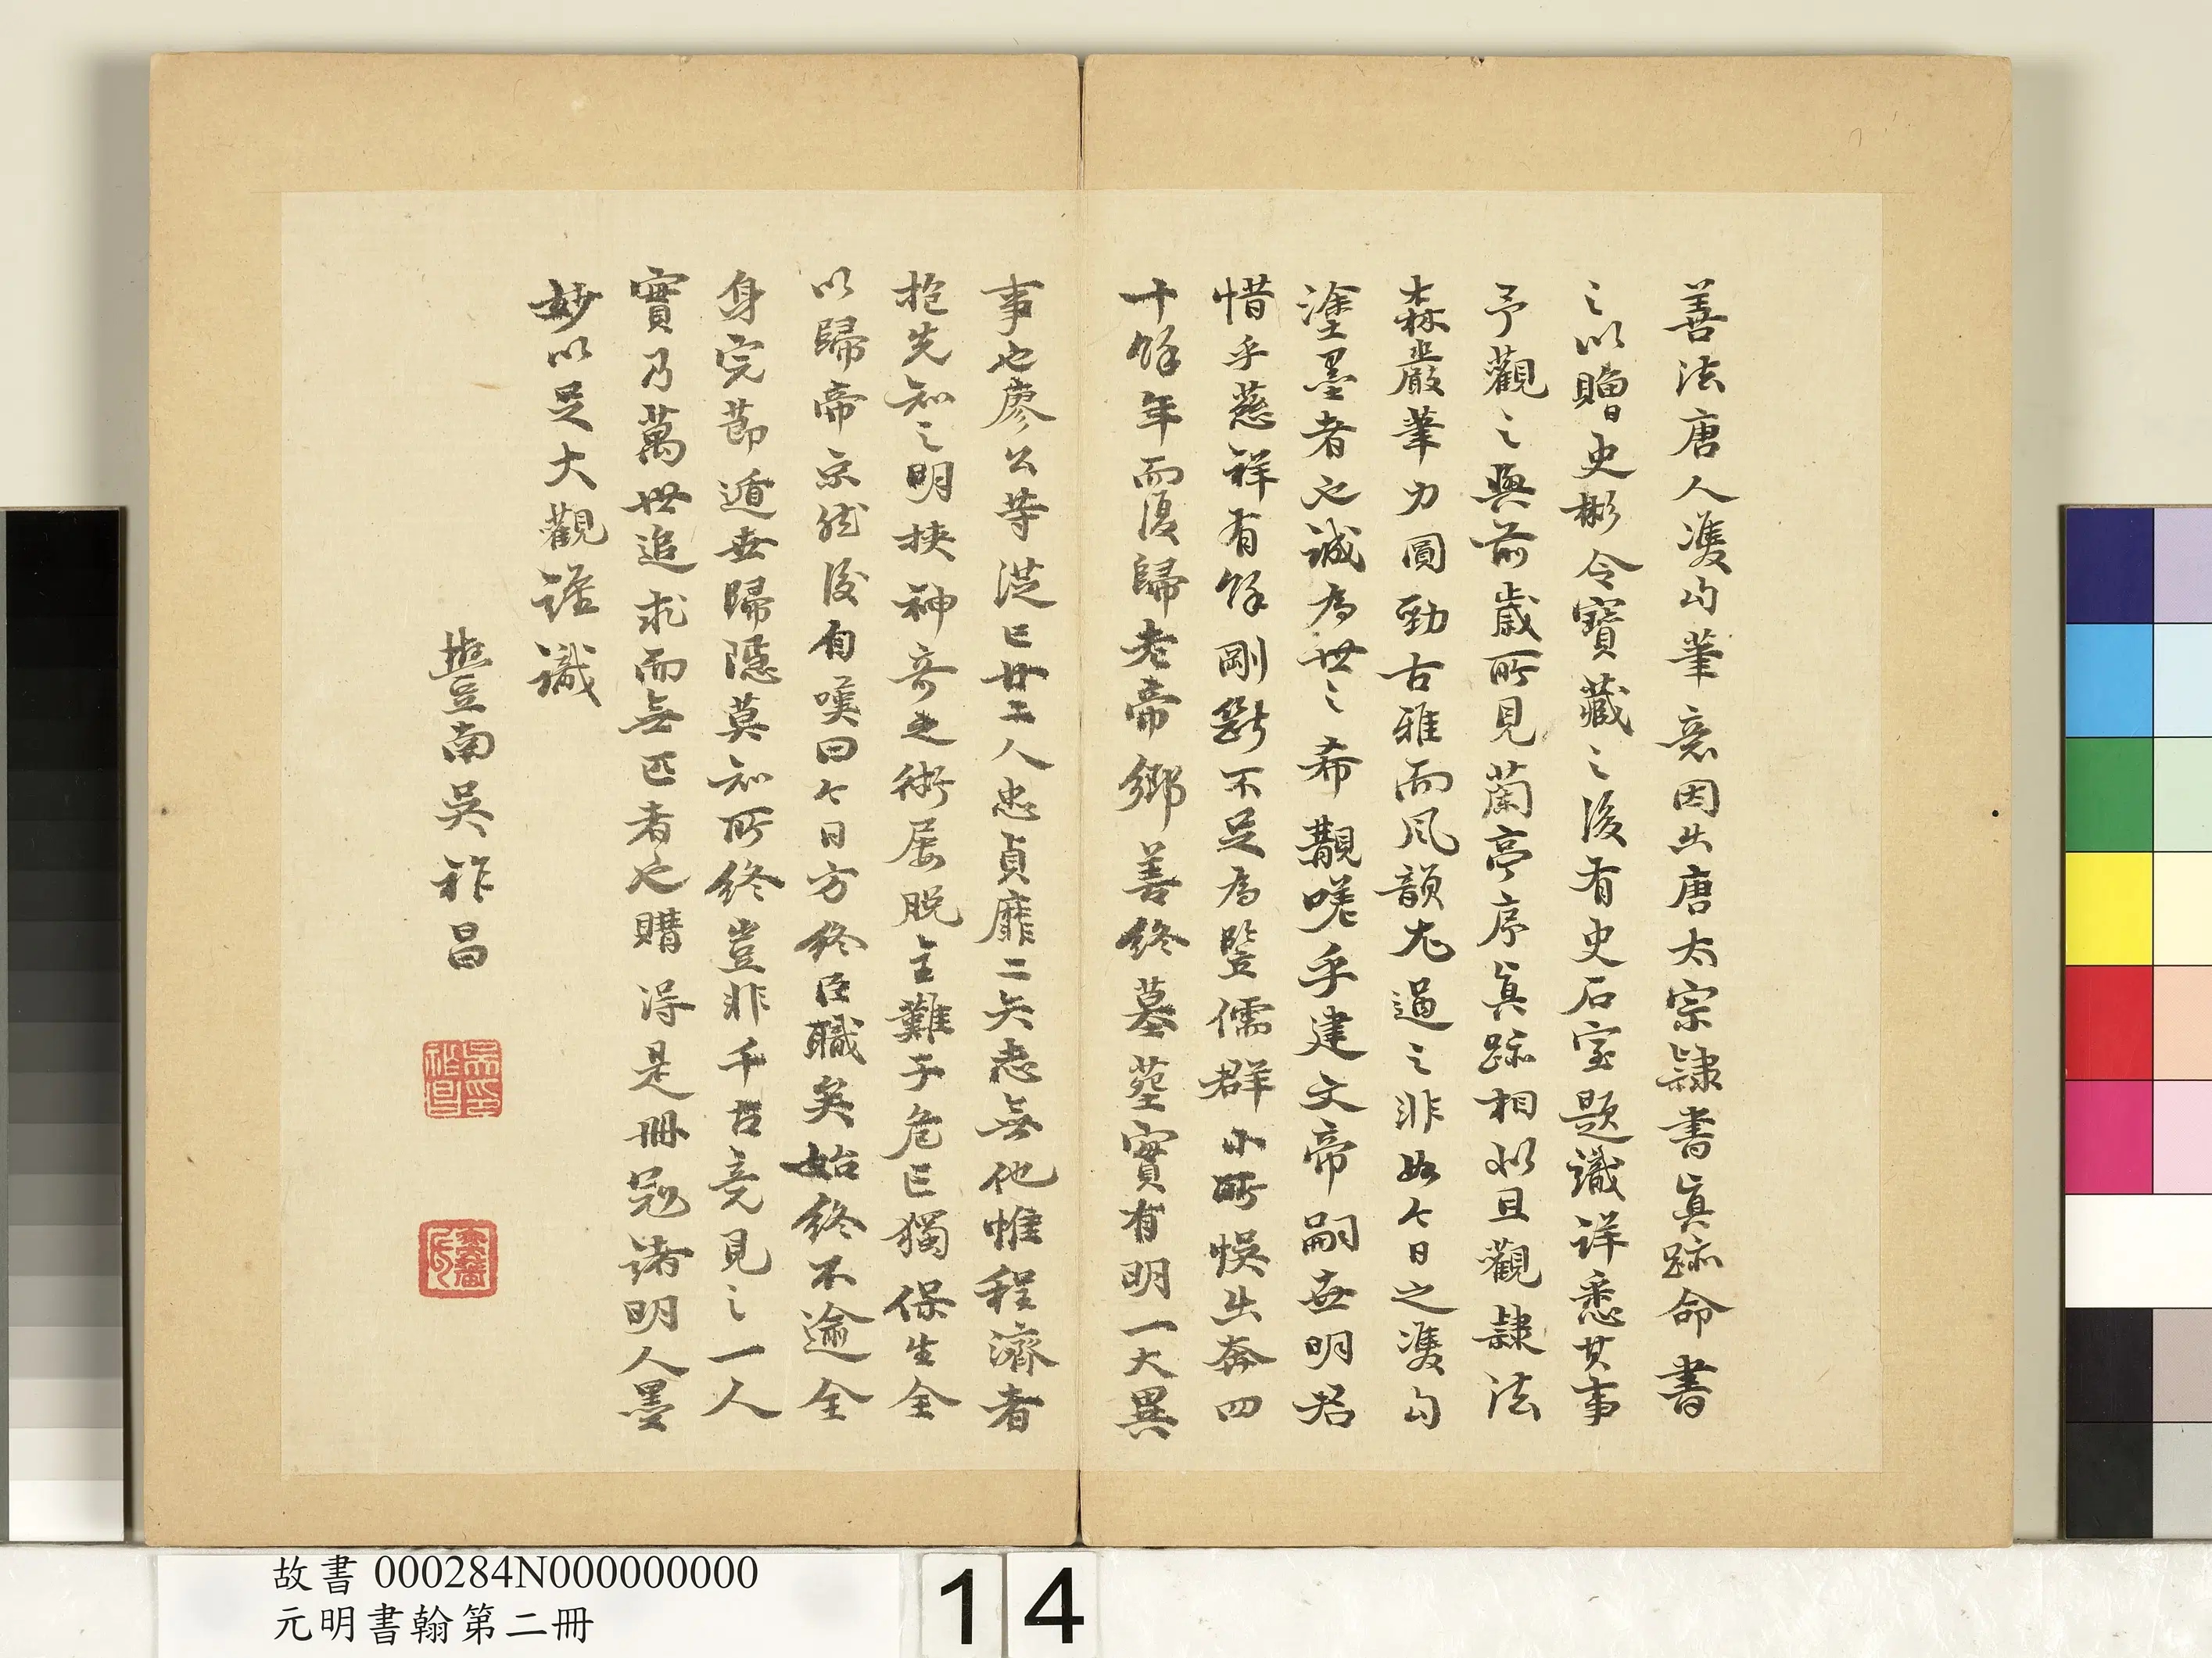 善法唐人雙勾筆意因出唐太宗隸書真跡命書
之以贈史彬令寶藏之後有史石室題識詳悉其事
予觀之與前歲所見蘭亭序真跡相似且觀隸法
森嚴筆力圓勁古雅而風韻尤過之非如今日之雙勾
塗墨者也誠為世之希覯嗟乎建文帝嗣世明君
惜乎慈祥有餘剛斷不足為豎儒群小所悞出奔四
十餘年而復歸老帝鄉善終墓葬實有明一大異
事也廖公等從亡廿二人忠貞靡二矢志無他惟程濟者
抱先知之明挾神奇之術屢脫主難于危亡獨保生全
以歸帝京然後自嘆曰今日方終臣職矣始終不逾全
身完節遁世歸隱莫知所終豈非千古竟見之一人
實乃萬世追求而無匹者也購得是冊冠諸明人墨
妙以足大觀謹識
豐南吳祚昌
吳祚昌印
故書 000284N000000000
元明書翰第二冊
14